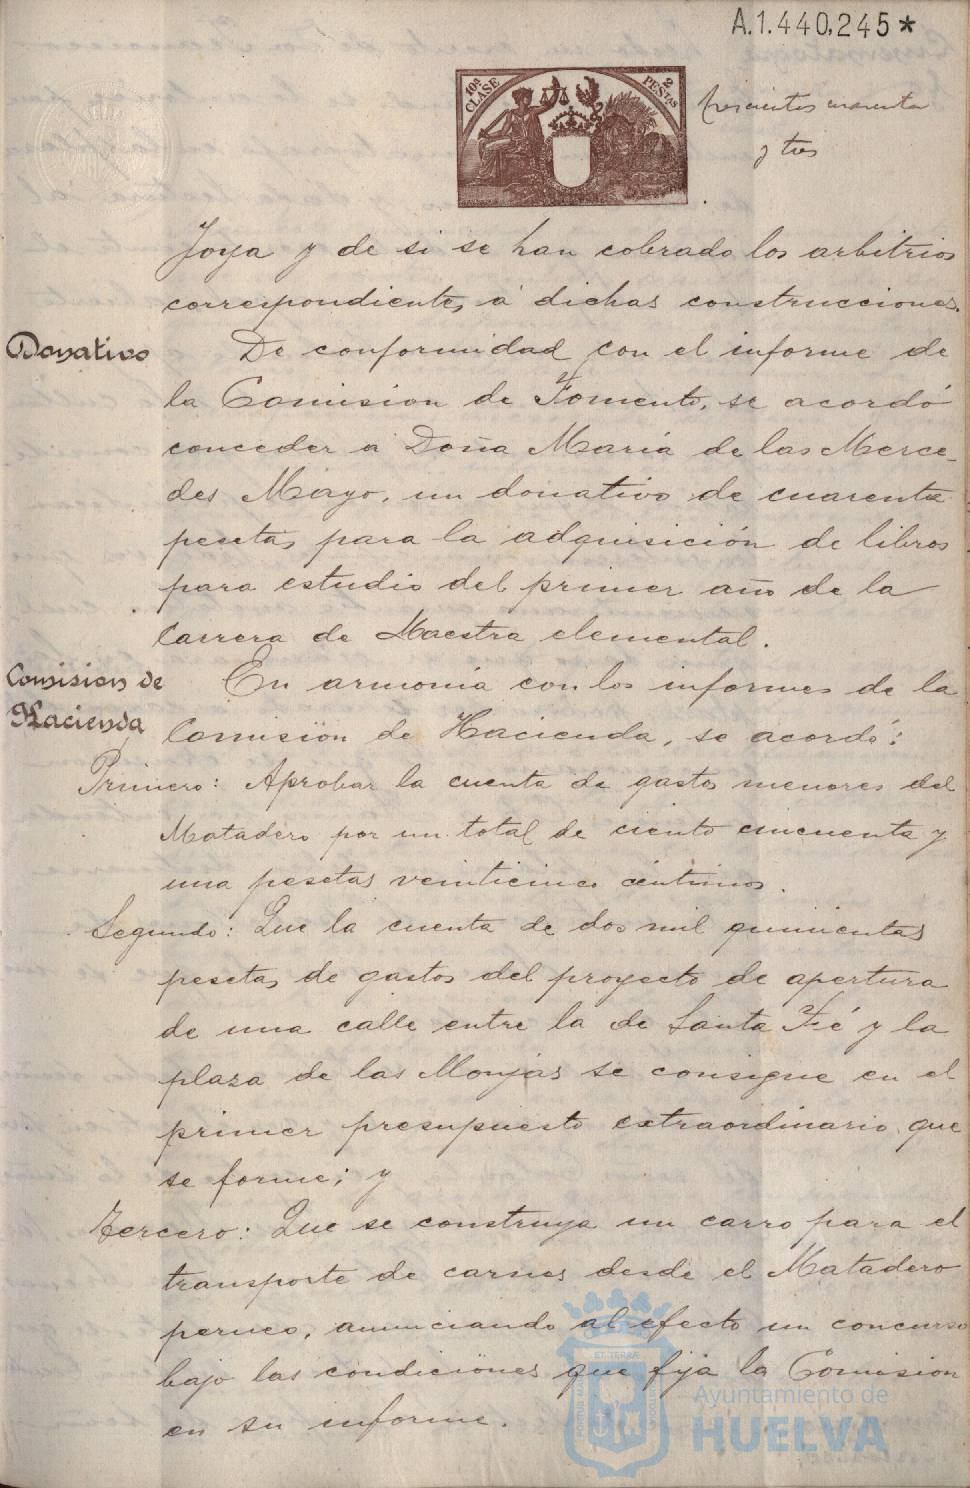 A.1.440,245*
10ª CLASE
2 PESTAS
trescientos cuarenta
y tres
Joya y de si se han cobrado los arbitrios
correspondientes á dichas construcciones.
Donativo
De conformidad con el informe de
la Comision de Fomento, se acordó
conceder a Doña Maria de las Merce-
des Mayo, un donativo de cuarenta
pesetas para la adquisición de libros
para estudio del primer año de la
Carrera de Maestra elemental.
Comision de
Hacienda
En armonia con los informes de la
Comision de Hacienda, se acordó:
Primero: Aprobar la cuenta de gastos menores del
Matadero por un total de ciento cincuenta y
una pesetas veinticinco céntimos.
Segundo: Que la cuenta de dos mil quinientas
pesetas de gastos del proyecto de apertura
de una calle entre la de Santa Fé y la
plaza de las Monjas se consigne en el
primer presupuesto extraordinario que
se forme; y
Tercero: Que se construya un carro para el
transporte de carnes desde el Matadero
, anunciando al efecto un concurso
bajo las condiciones que fija la Comision
en su informe.
Ayuntamiento de
HUELVA